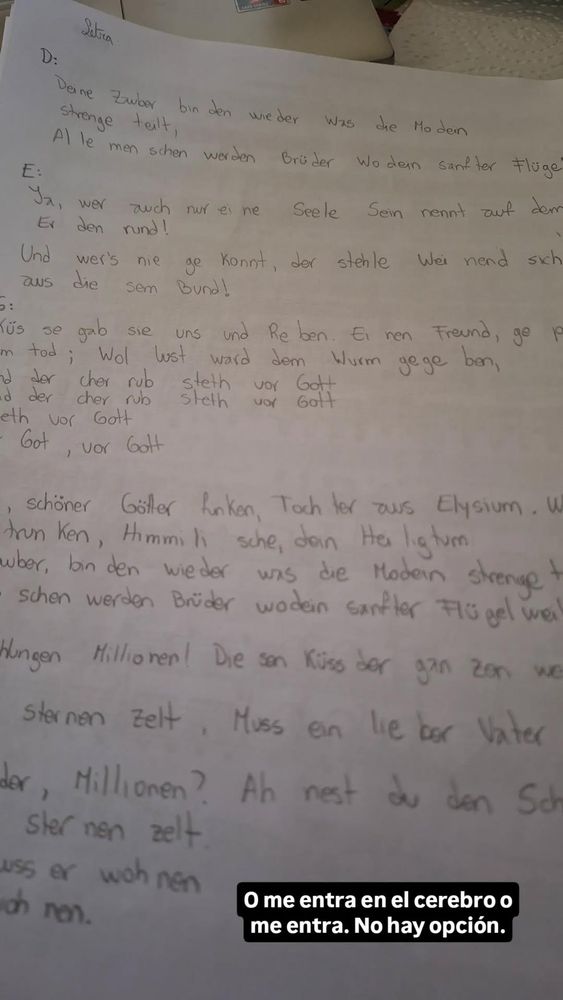 Letra
D:
Deine Zauber bin den wieder was die Modein
strenge teilt,
Al le men schen werden Brüder Wo dein sanfter Flüge
E:
Ja, wer auch nur ei ne Seele Sein nennt auf dem
Er den rund!
Und wer's nie ge konnt, der stehle Wei nend sich
aus die sem Bund!
G:
Küs se gab sie uns und Re ben. Ei nen Freund, ge p
m tod; Wol lust ward dem Wurm gege ben,
nd der cher rub steth vor Gott
d der cher rub steth vor Gott
eth vor Gott
Got, vor Gott
, schöner Götter funken, Toch ter aus Elysium. W
trun ken, Himmi li sche, dein Hei ligtum
uber, bin den wieder was die Modein strenge t
schen werden Brüder wodein sanfter Flü gel weil
hlungen Millionen! Die sen Küss der gan zen we
sternen zelt, Muss ein lie ber Vater
der, Millionen? Ah nest du den Sch
ster nen zelt.
uss er woh nen
oh nen.
O me entra en el cerebro o
me entra. No hay opción.